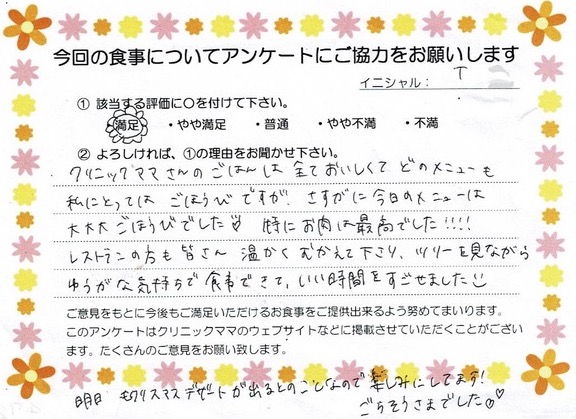 今回の食事についてアンケートにご協力をお願いします
イニシャル： T
① 該当する評価に○を付けて下さい。
満足 ・やや満足 ・普通 ・やや不満 ・不満
② よろしければ、①の理由をお聞かせ下さい。
クリニックママさんのごはんは全ておいしくてどのメニューも
私にとってはごほうびですが、さすがに今日のメニューは
大大大ごほうびでした♡ 特にお肉は最高でした!!!!
レストランの方も皆さん温かくむかえて下さり、ツリーを見ながら
ゆうがな気持ちで食事できて、いい時間をすごせました☺
ご意見をもとに今後もご満足いただけるお食事をご提供出来るよう努めてまいります。
このアンケートはクリニックママのウェブサイトなどに掲載させていただくことがござい
ます。たくさんのご意見をお願い致します。
明日 もクリスマスデザートが出るとのことなので楽しみにしてます!
ごちそうさまでした♡♡